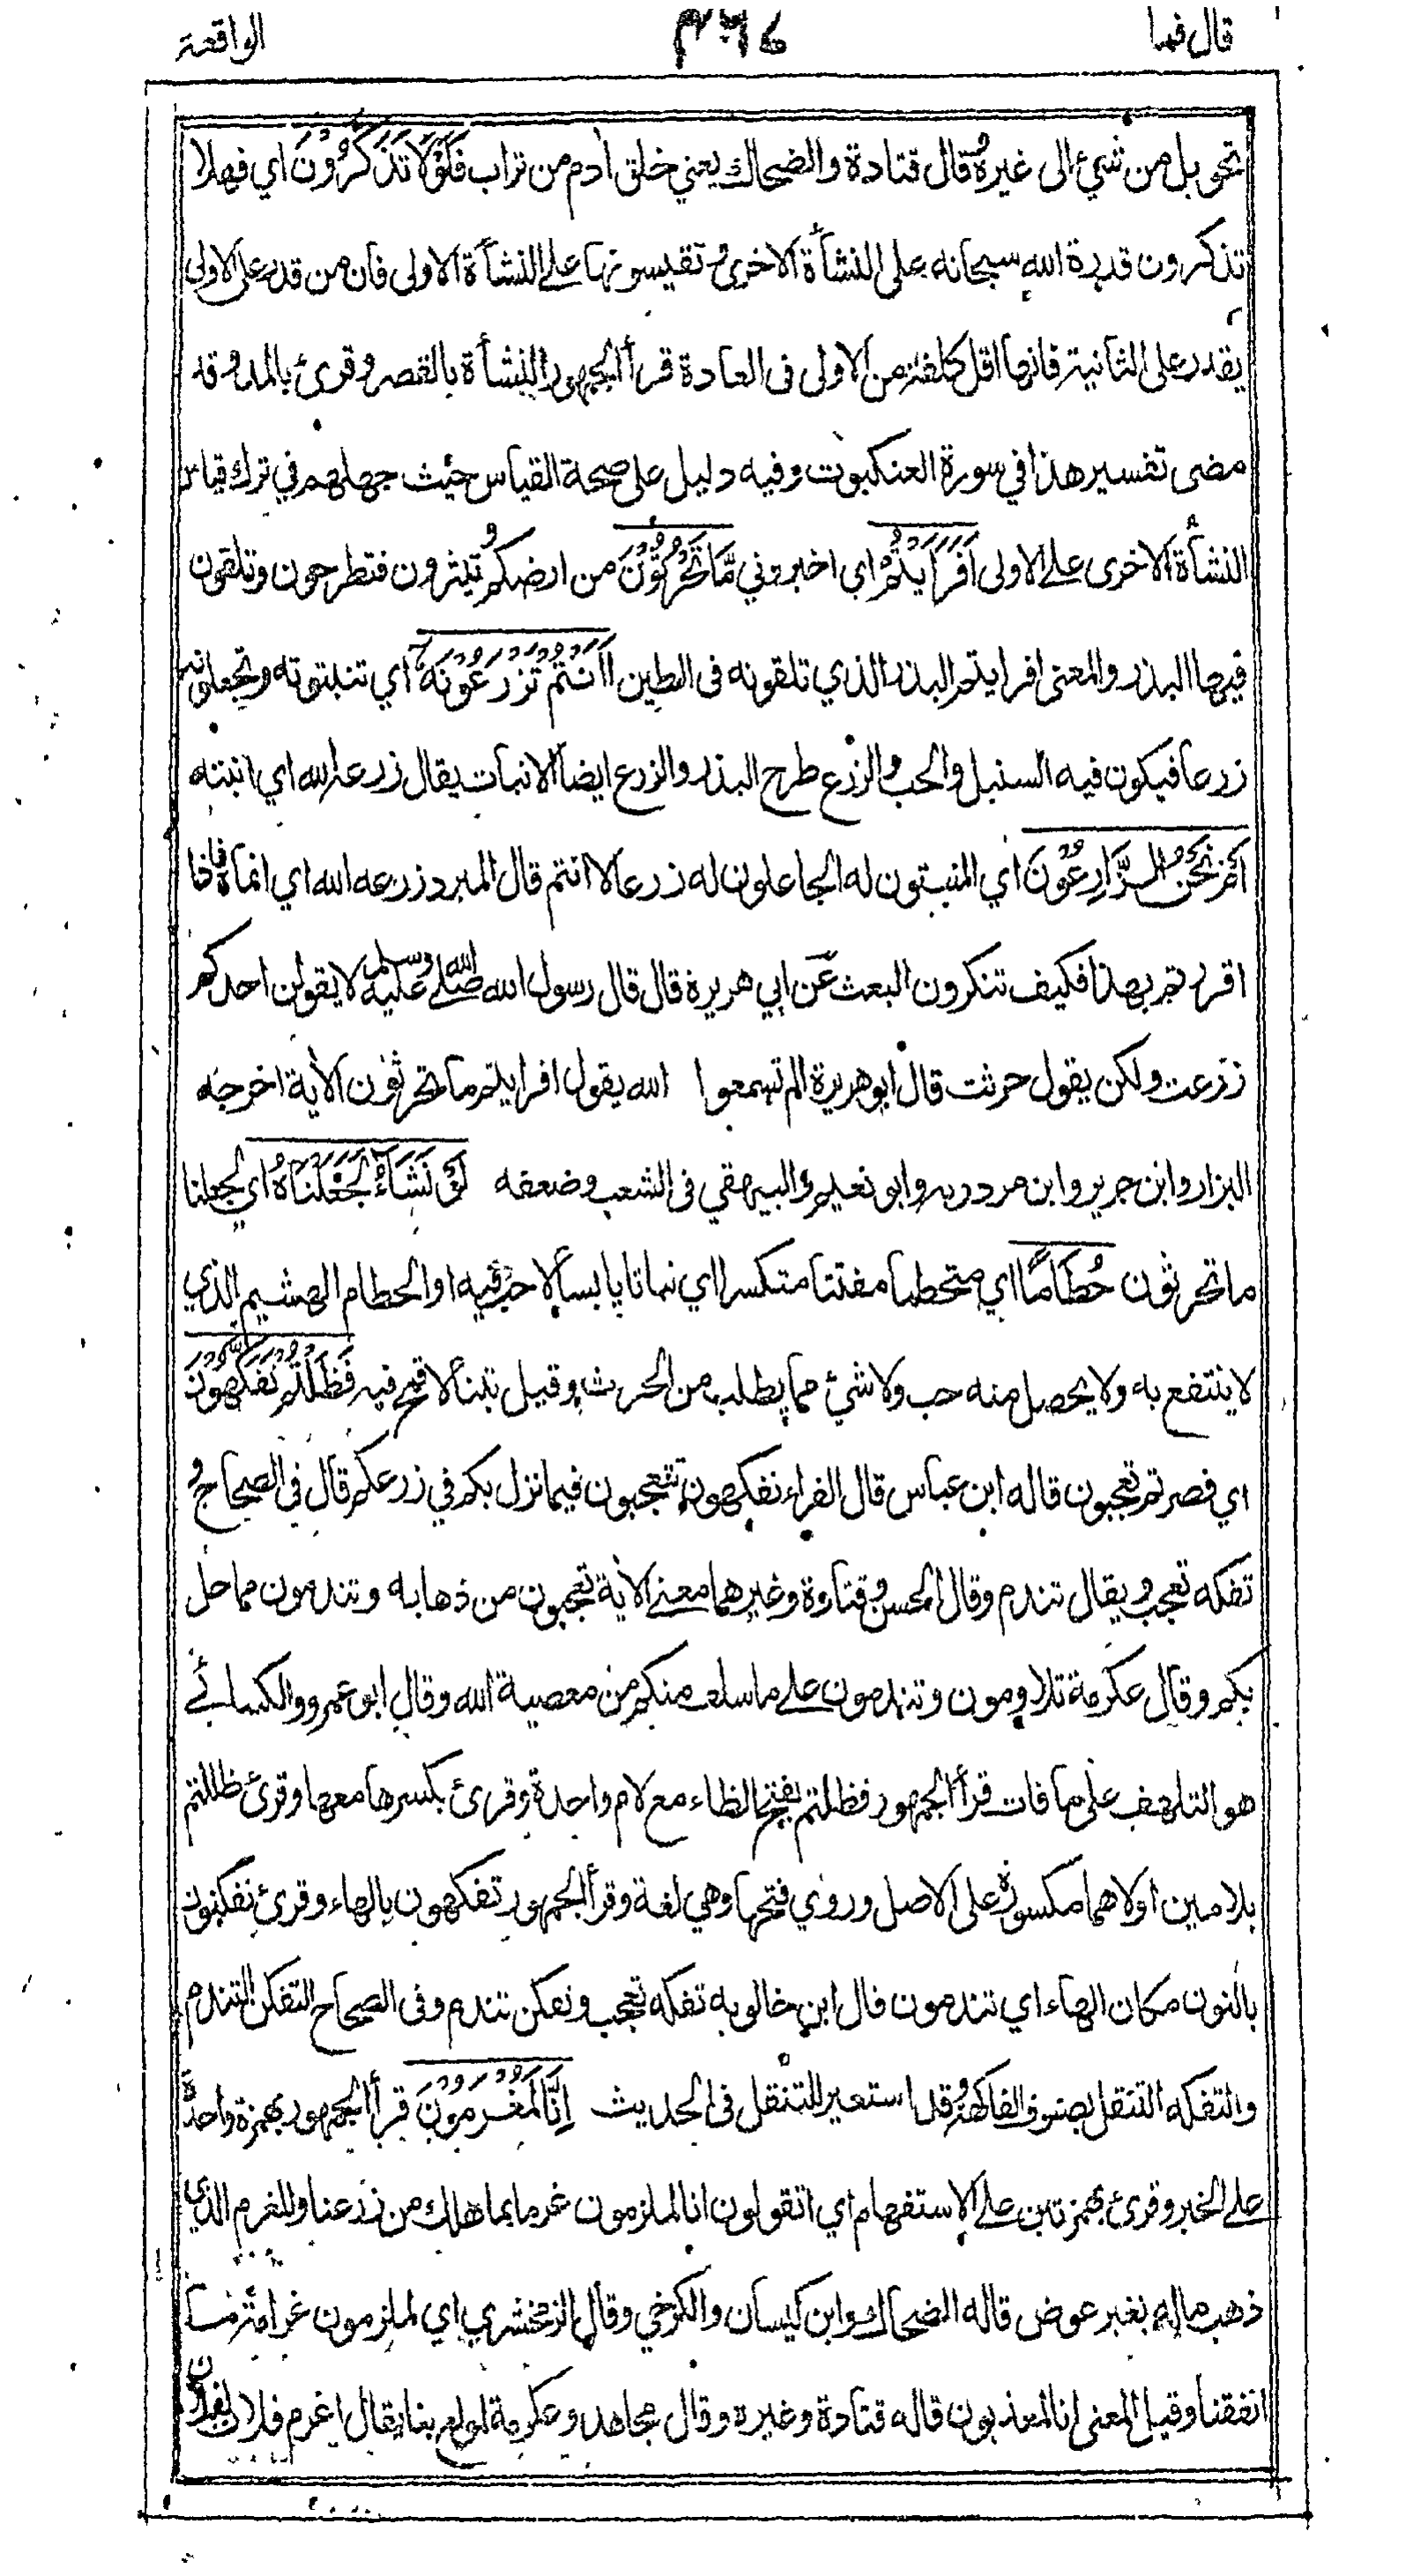 قال فما
الواقعة
تحويل من شيء الى غيره قال قتادة والضحاك يعني خلق آدم من تراب فَلَوْلَا تَذَكَّرُوْنَ اي فهلا
تذكرون قدرة الله سبحانه على النشأة الاخرى و تقيسونها على النشأة الاولى فان من قدر على الاولى
يقدر على الثانية فانها اقل كلفة من الاولى فى العادة قرأ الجمهور النشأة بالقصر وقرئ بالمد وقد
مضى تفسير هذا في سورة العنكبوت وفيه دليل على صحة القياس حيث جهلهم في ترك قياس
النشأة الاخرى على الاولى اَفَرَاَيْتُمْ اي اخبروني مَّا تَحْرُثُوْنَ من ارضكم تثيرون فتطرحون وتلقون
فيها البذر والمعنى افرايتم البذر الذي تلقونه فى الطين ءَاَنْتُمْ تَزْرَعُوْنَهٗ اي تنبتونه وتجعلونه
زرعا فيكون فيه السنبل والحب والزرع طرح البذر والزرع ايضا الانبات يقال زرعه الله اي انبته
اَمْ نَحْنُ الزَّارِعُوْنَ اي المنبتون له الجاعلون له زرعا لا انتم قال المبرد زرعه الله اي انماه فاذا
اقررتم بهذا فكيف تنكرون البعث عن ابي هريرة قال قال رسول الله صلى الله عليه وسلم لا يقولن احدكم
زرعت ولكن يقول حرثت قال ابو هريرة الم تسمعوا الله يقول افرايتم ما تحرثون الآية اخرجه
البزار وابن جرير وابن مردويه وابو نعيم والبيهقي فى الشعب وضعفه لَوْ نَشَآءُ لَجَعَلْنَاهُ اي لجعلنا
ما تحرثون حُطَامًا اي متحطما مفتتا متكسرا اي نباتا يابسا لا حب فيه او الحطام الهشيم الذي
لا ينتفع به ولا يحصل منه حب ولا شئ مما يطلب من الحرث وقيل تبنا لا قمح فيه فَظَلْتُمْ تَفَكَّهُوْنَ
اي فصرتم تعجبون قاله ابن عباس قال الفراء تفكهون تتعجبون فيما نزل بكم في زرعكم قال فى الصحاح و
تفكه تعجب ويقال تندم وقال الحسن وقتادة وغيرهما معنى الآية تعجبون من ذهابه وتندمون مما حل
بكم وقال عكرمة تلاومون وتندمون على ما سلف منكم من معصية الله وقال ابو عمرو والكسائي
هو التلهف على ما فات قرأ الجمهور فظلتم بفتح الظاء مع لام واحدة وقرئ بكسرها معها وقرئ ظللتم
بلامين اولاهما مكسورة على الاصل وروي فتحها وهي لغة وقرأ الجمهور تفكهون بالهاء وقرئ تفكنون
بالنون مكان الهاء اي تندمون قال ابن خالويه تفكه تعجب وتفكن تندم وفى الصحاح التفكن التندم
والتفكه التنقل بصنوف الفاكهة وقد استعير للتنقل فى الحديث اِنَّا لَمُغْرَمُوْنَ قرأ الجمهور بهمزة واحدة
على الخبر وقرئ بهمزتين على الاستفهام اي اتقولون انا لملزمون غرما بما هلك من زرعنا والمغرم الذي
ذهب ماله بغير عوض قاله الضحاك وابن كيسان والكرخي وقال الزمخشري اي لملزمون غرامة ما
انفقنا وقيل المعنى انا لمعذبون قاله قتادة وغيره وقال مجاهد وعكرمة لمولع بنا يقال اغرم فلان بفلان